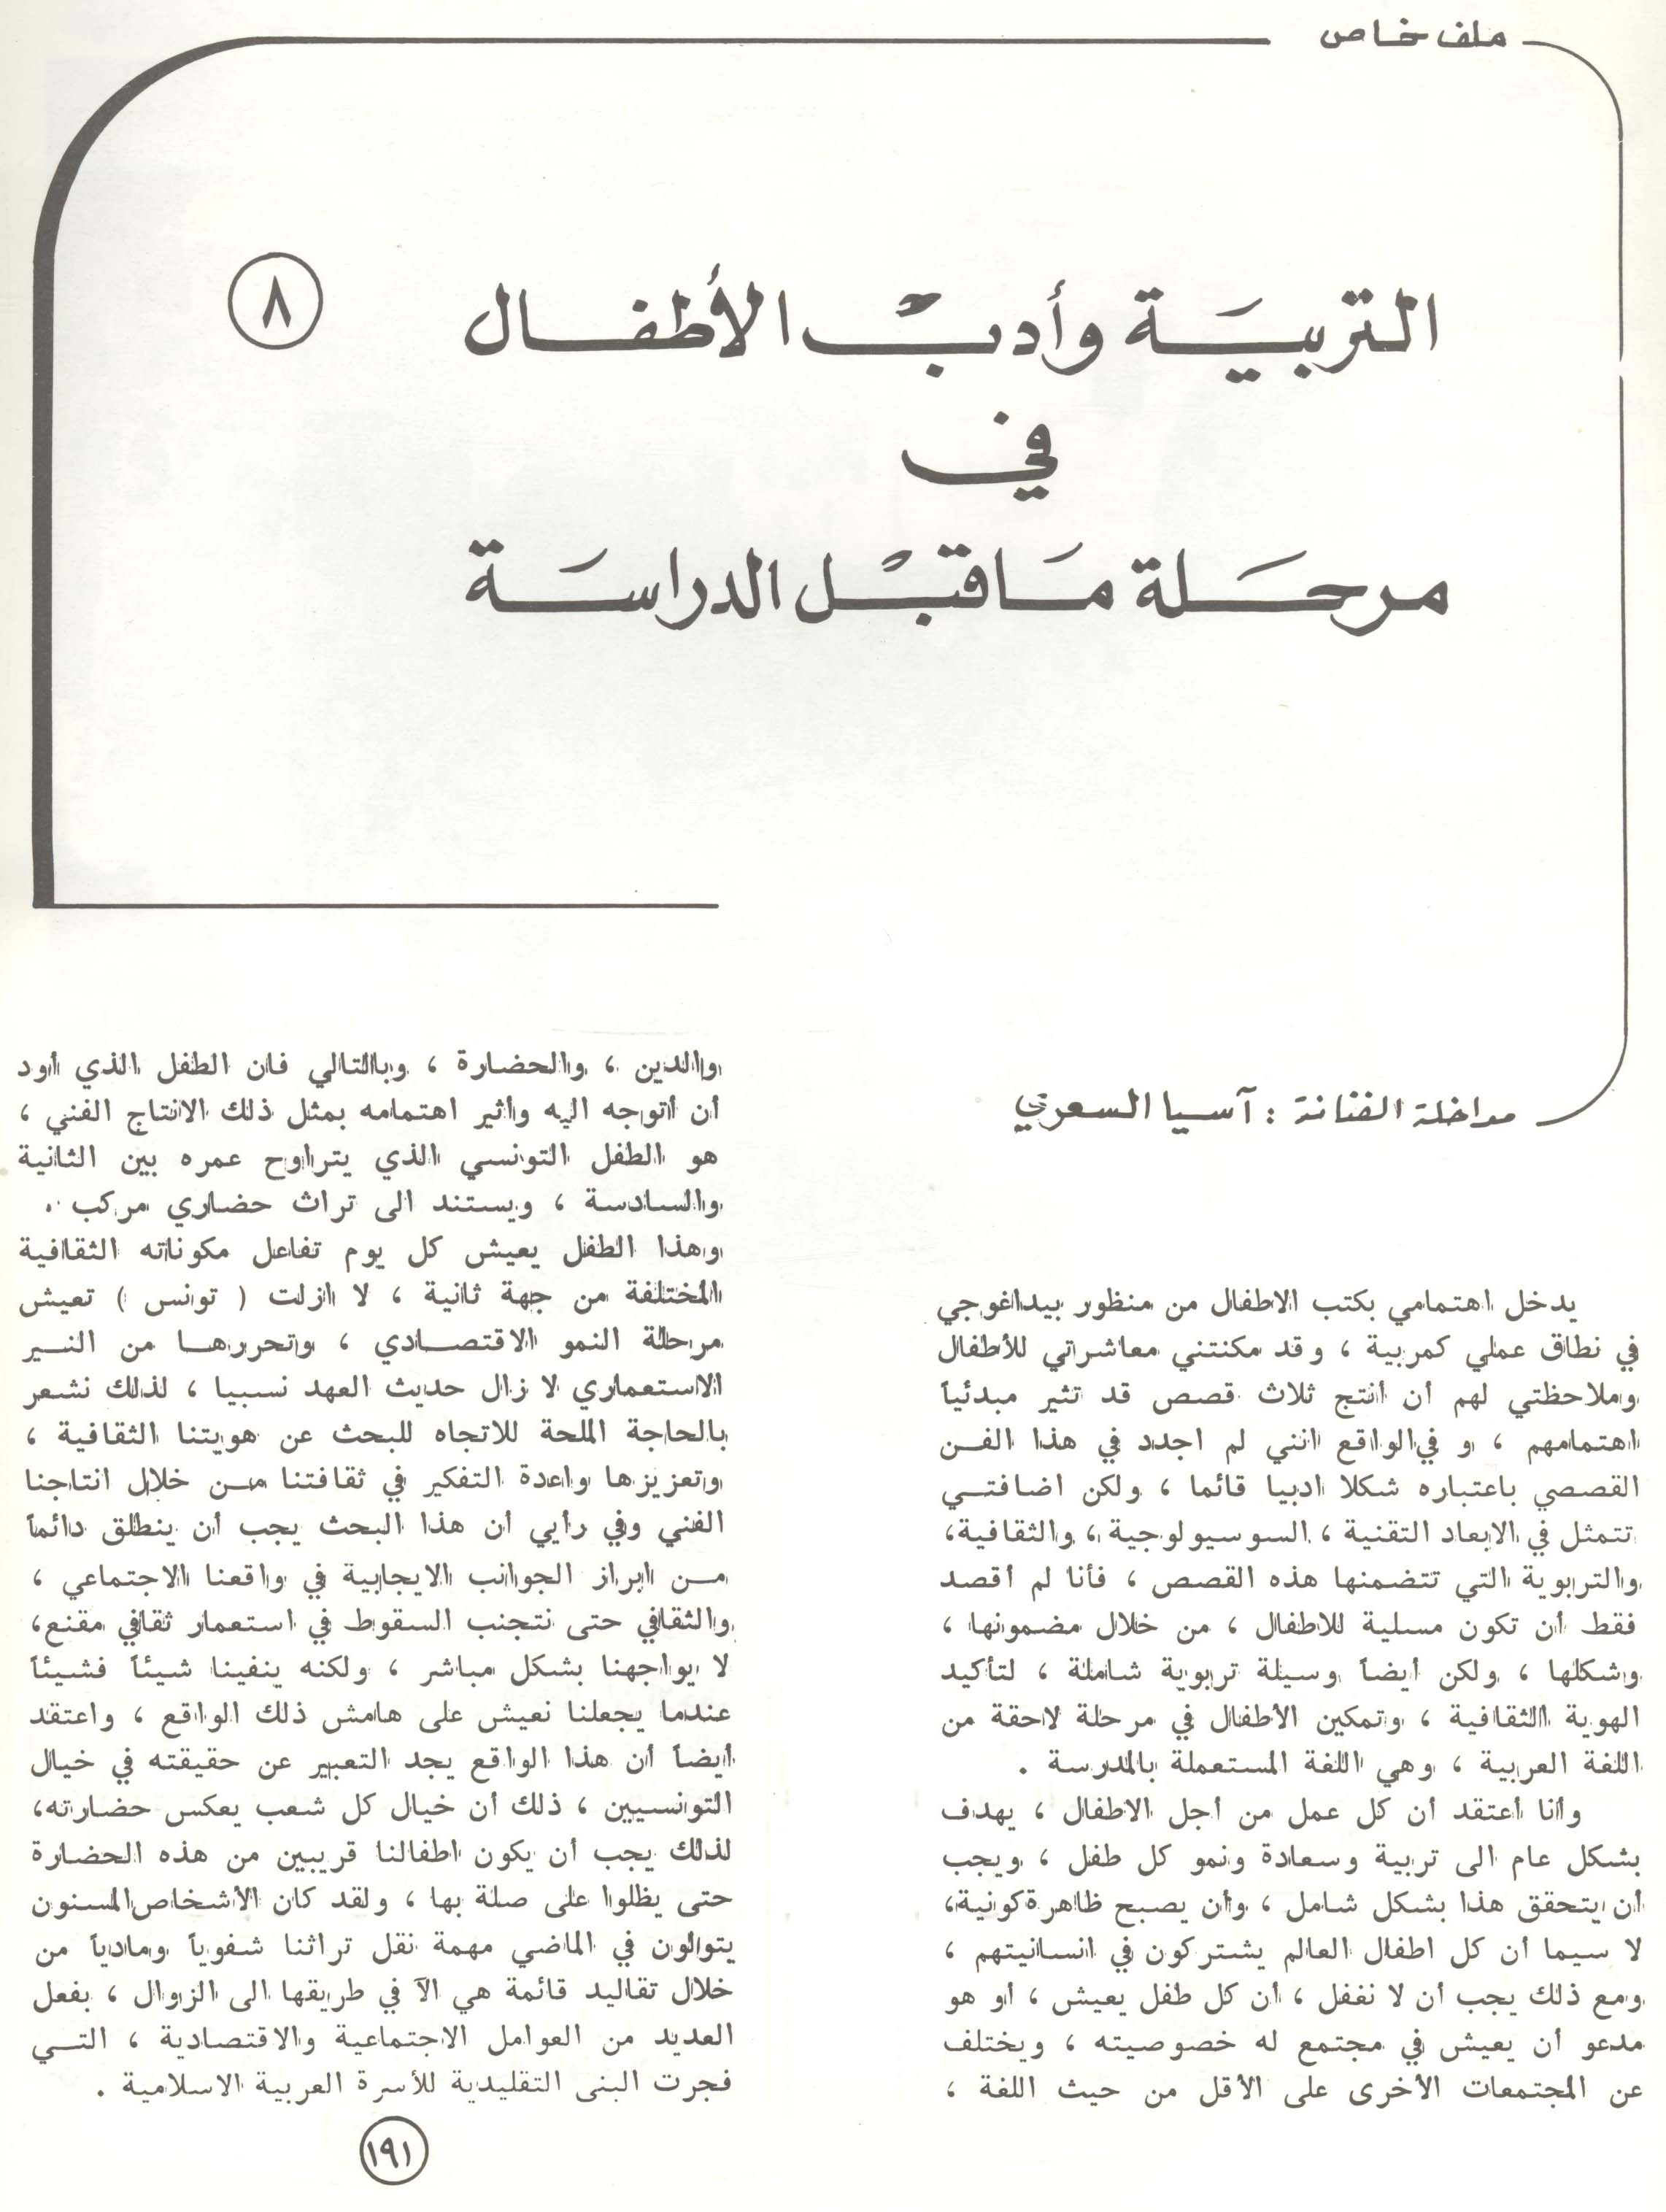 ملف خاص
التربية وأدب الأطفال
٨
في
مرحلة ما قبل الدراسة
مداخلة الفنانة : آسيا السعري
يدخل اهتمامي بكتب الاطفال من منظور بيداغوجي
في نطاق عملي كمربية ، وقد مكنتني معاشراتي للأطفال
وملاحظتي لهم أن أنتج ثلاث قصص قد تثير مبدئياً
اهتمامهم ، و في الواقع انني لم اجدد في هذا الفن
القصصي باعتباره شكلا ادبيا قائما ، ولكن اضافتي
تتمثل في الابعاد التقنية ، السوسيولوجية ، والثقافية،
والتربوية التي تتضمنها هذه القصص ، فأنا لم أقصد
فقط أن تكون مسلية للاطفال ، من خلال مضمونها ،
وشكلها ، ولكن أيضاً وسيلة تربوية شاملة ، لتأكيد
الهوية الثقافية ، وتمكين الأطفال في مرحلة لاحقة من
اللغة العربية ، وهي اللغة المستعملة بالمدرسة .
وأنا أعتقد أن كل عمل من أجل الاطفال ، يهدف
بشكل عام الى تربية وسعادة ونمو كل طفل ، ويجب
أن يتحقق هذا بشكل شامل ، وأن يصبح ظاهرة كونية،
لا سيما أن كل اطفال العالم يشتركون في انسانيتهم ،
ومع ذلك يجب أن لا نغفل ، أن كل طفل يعيش ، أو هو
مدعو أن يعيش في مجتمع له خصوصيته ، ويختلف
عن المجتمعات الأخرى على الأقل من حيث اللغة ،
والدين ، والحضارة ، وبالتالي فان الطفل الذي أود
أن أتوجه اليه وأثير اهتمامه بمثل ذلك الانتاج الفني ،
هو الطفل التونسي الذي يتراوح عمره بين الثانية
والسادسة ، ويستند الى تراث حضاري مركب .
وهذا الطفل يعيش كل يوم تفاعل مكوناته الثقافية
المختلفة من جهة ثانية ، لا ازلت ( تونس ) تعيش
مرحلة النمو الاقتصادي ، وتحررها من النير
الاستعماري لا زال حديث العهد نسبيا ، لذلك نشعر
بالحاجة الملحة للاتجاه للبحث عن هويتنا الثقافية ،
وتعزيزها واعدة التفكير في ثقافتنا من خلال انتاجنا
الفني وفي رأيي أن هذا البحث يجب أن ينطلق دائماً
من ابراز الجوانب الايجابية في واقعنا الاجتماعي ،
والثقافي حتى نتجنب السقوط في استعمار ثقافي مقنع،
لا يواجهنا بشكل مباشر ، ولكنه ينفينا شيئاً فشيئاً
عندما يجعلنا نعيش على هامش ذلك الواقع ، واعتقد
أيضاً أن هذا الواقع يجد التعبير عن حقيقته في خيال
التونسيين ، ذلك أن خيال كل شعب يعكس حضارته،
لذلك يجب أن يكون اطفالنا قريبين من هذه الحضارة
حتى يظلوا على صلة بها ، ولقد كان الأشخاص المسنون
يتوالون في الماضي مهمة نقل تراثنا شفوياً ومادياً من
خلال تقاليد قائمة هي الآ في طريقها الى الزوال ، بفعل
العديد من العوامل الاجتماعية والاقتصادية ، التي
فجرت البنى التقليدية للأسرة العربية الاسلامية .
١٩١